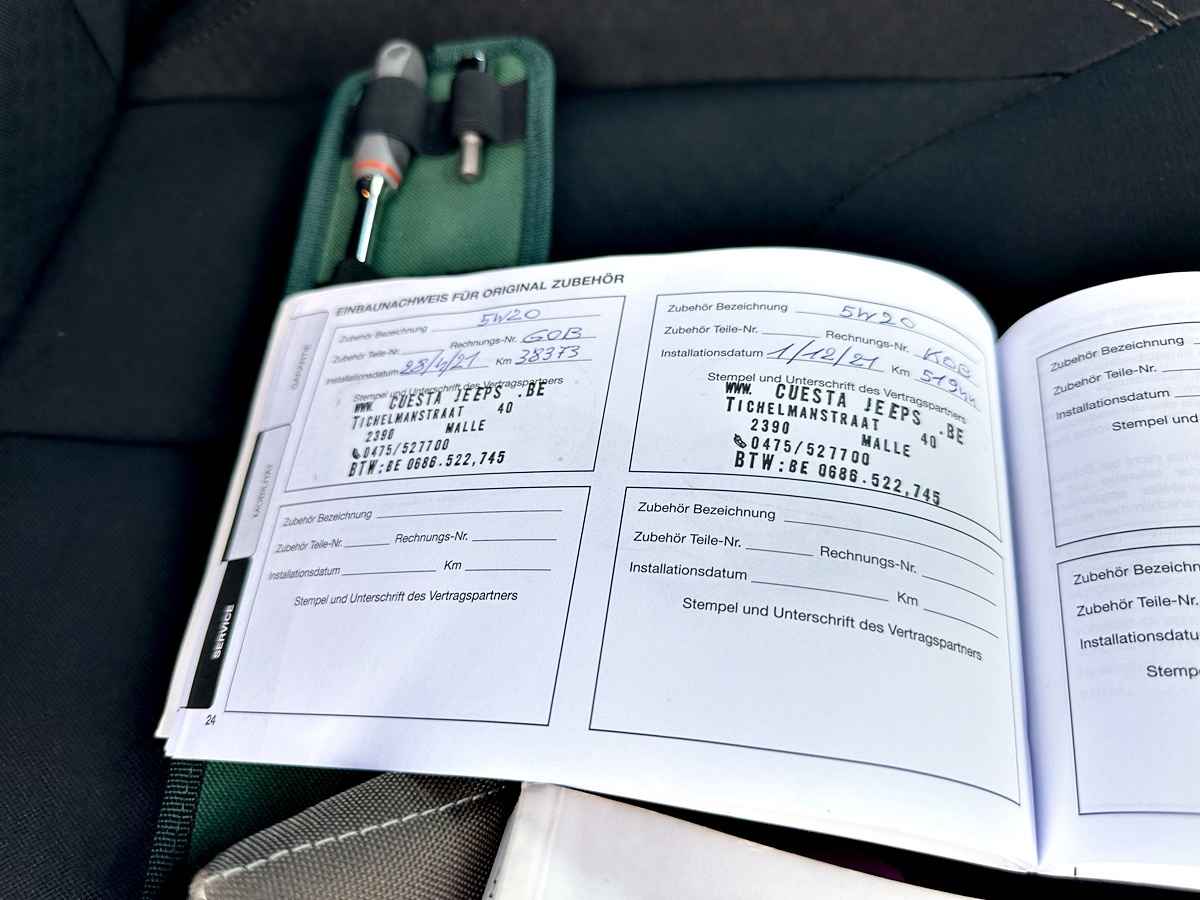 EINBAUNACHWEIS FÜR ORIGINAL ZUBEHÖR
GARANTIE
MOBILITÄT
SERVICE
Zubehör Bezeichnung 5W20
Zubehör Teile-Nr. Rechnungs-Nr.
Installationsdatum Km 38373
Stempel und Unterschrift des Vertragspartners
WWW. CUESTA JEEPS .BE
TICHELMANSTRAAT 40
2390 MALLE
0475/527700
BTW:BE 0686.522,745
Zubehör Bezeichnung 5W20
Zubehör Teile-Nr. Rechnungs-Nr.
Installationsdatum 1/12/21 Km
Stempel und Unterschrift des Vertragspartners
WWW. CUESTA JEEPS .BE
TICHELMANSTRAAT 40
2390 MALLE
0475/527700
BTW:BE 0686.522,745
Zubehör Bezeichnung
Zubehör Teile-Nr. Rechnungs-Nr.
Installationsdatum Km
Stempel und Unterschrift des Vertragspartners
Zubehör Bezeichnung
Zubehör Teile-Nr. Rechnungs-Nr.
Installationsdatum Km
Stempel und Unterschrift des Vertragspartners
24
Zubehör Bezeichnung
Zubehör Teile-Nr.
Installationsdatum
Stempel und
Zubehör
Zubehör Teile-Nr.